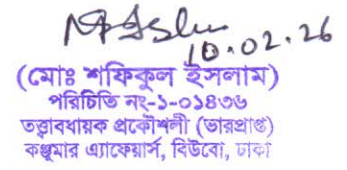 10.02.26
(মোঃ শফিকুল ইসলাম)
পরিচিতি নং-১-০১৪৩৬
তত্ত্বাবধায়ক প্রকৌশলী (ভারপ্রাপ্ত)
কঞ্জুমার এ্যাফেয়ার্স, বিউবো, ঢাকা